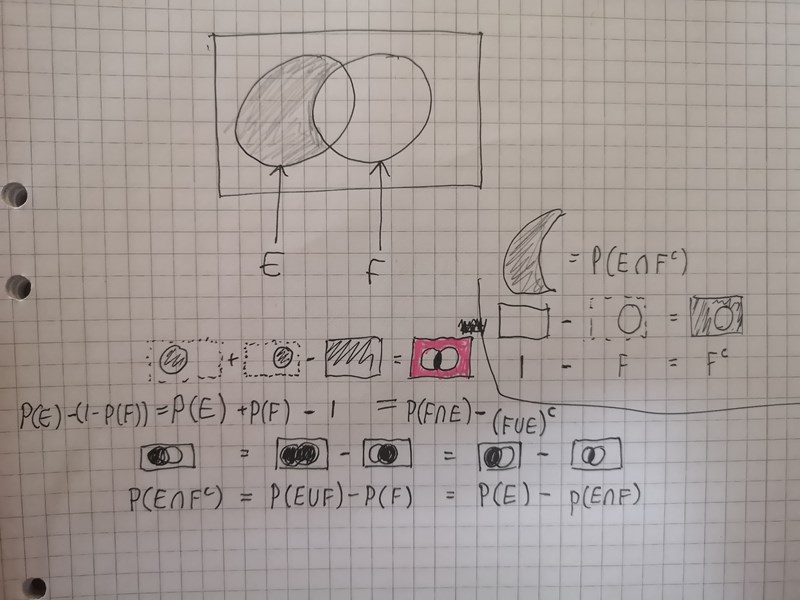 E F
= P(E∩Fᶜ)
- =
1 - F = Fᶜ
+ - =
P(E)-(1-P(F)) = P(E) + P(F) - 1 = P(F∩E) - (F∪E)ᶜ
= - = -
P(E∩Fᶜ) = P(E∪F) - P(F) = P(E) - P(E∩F)